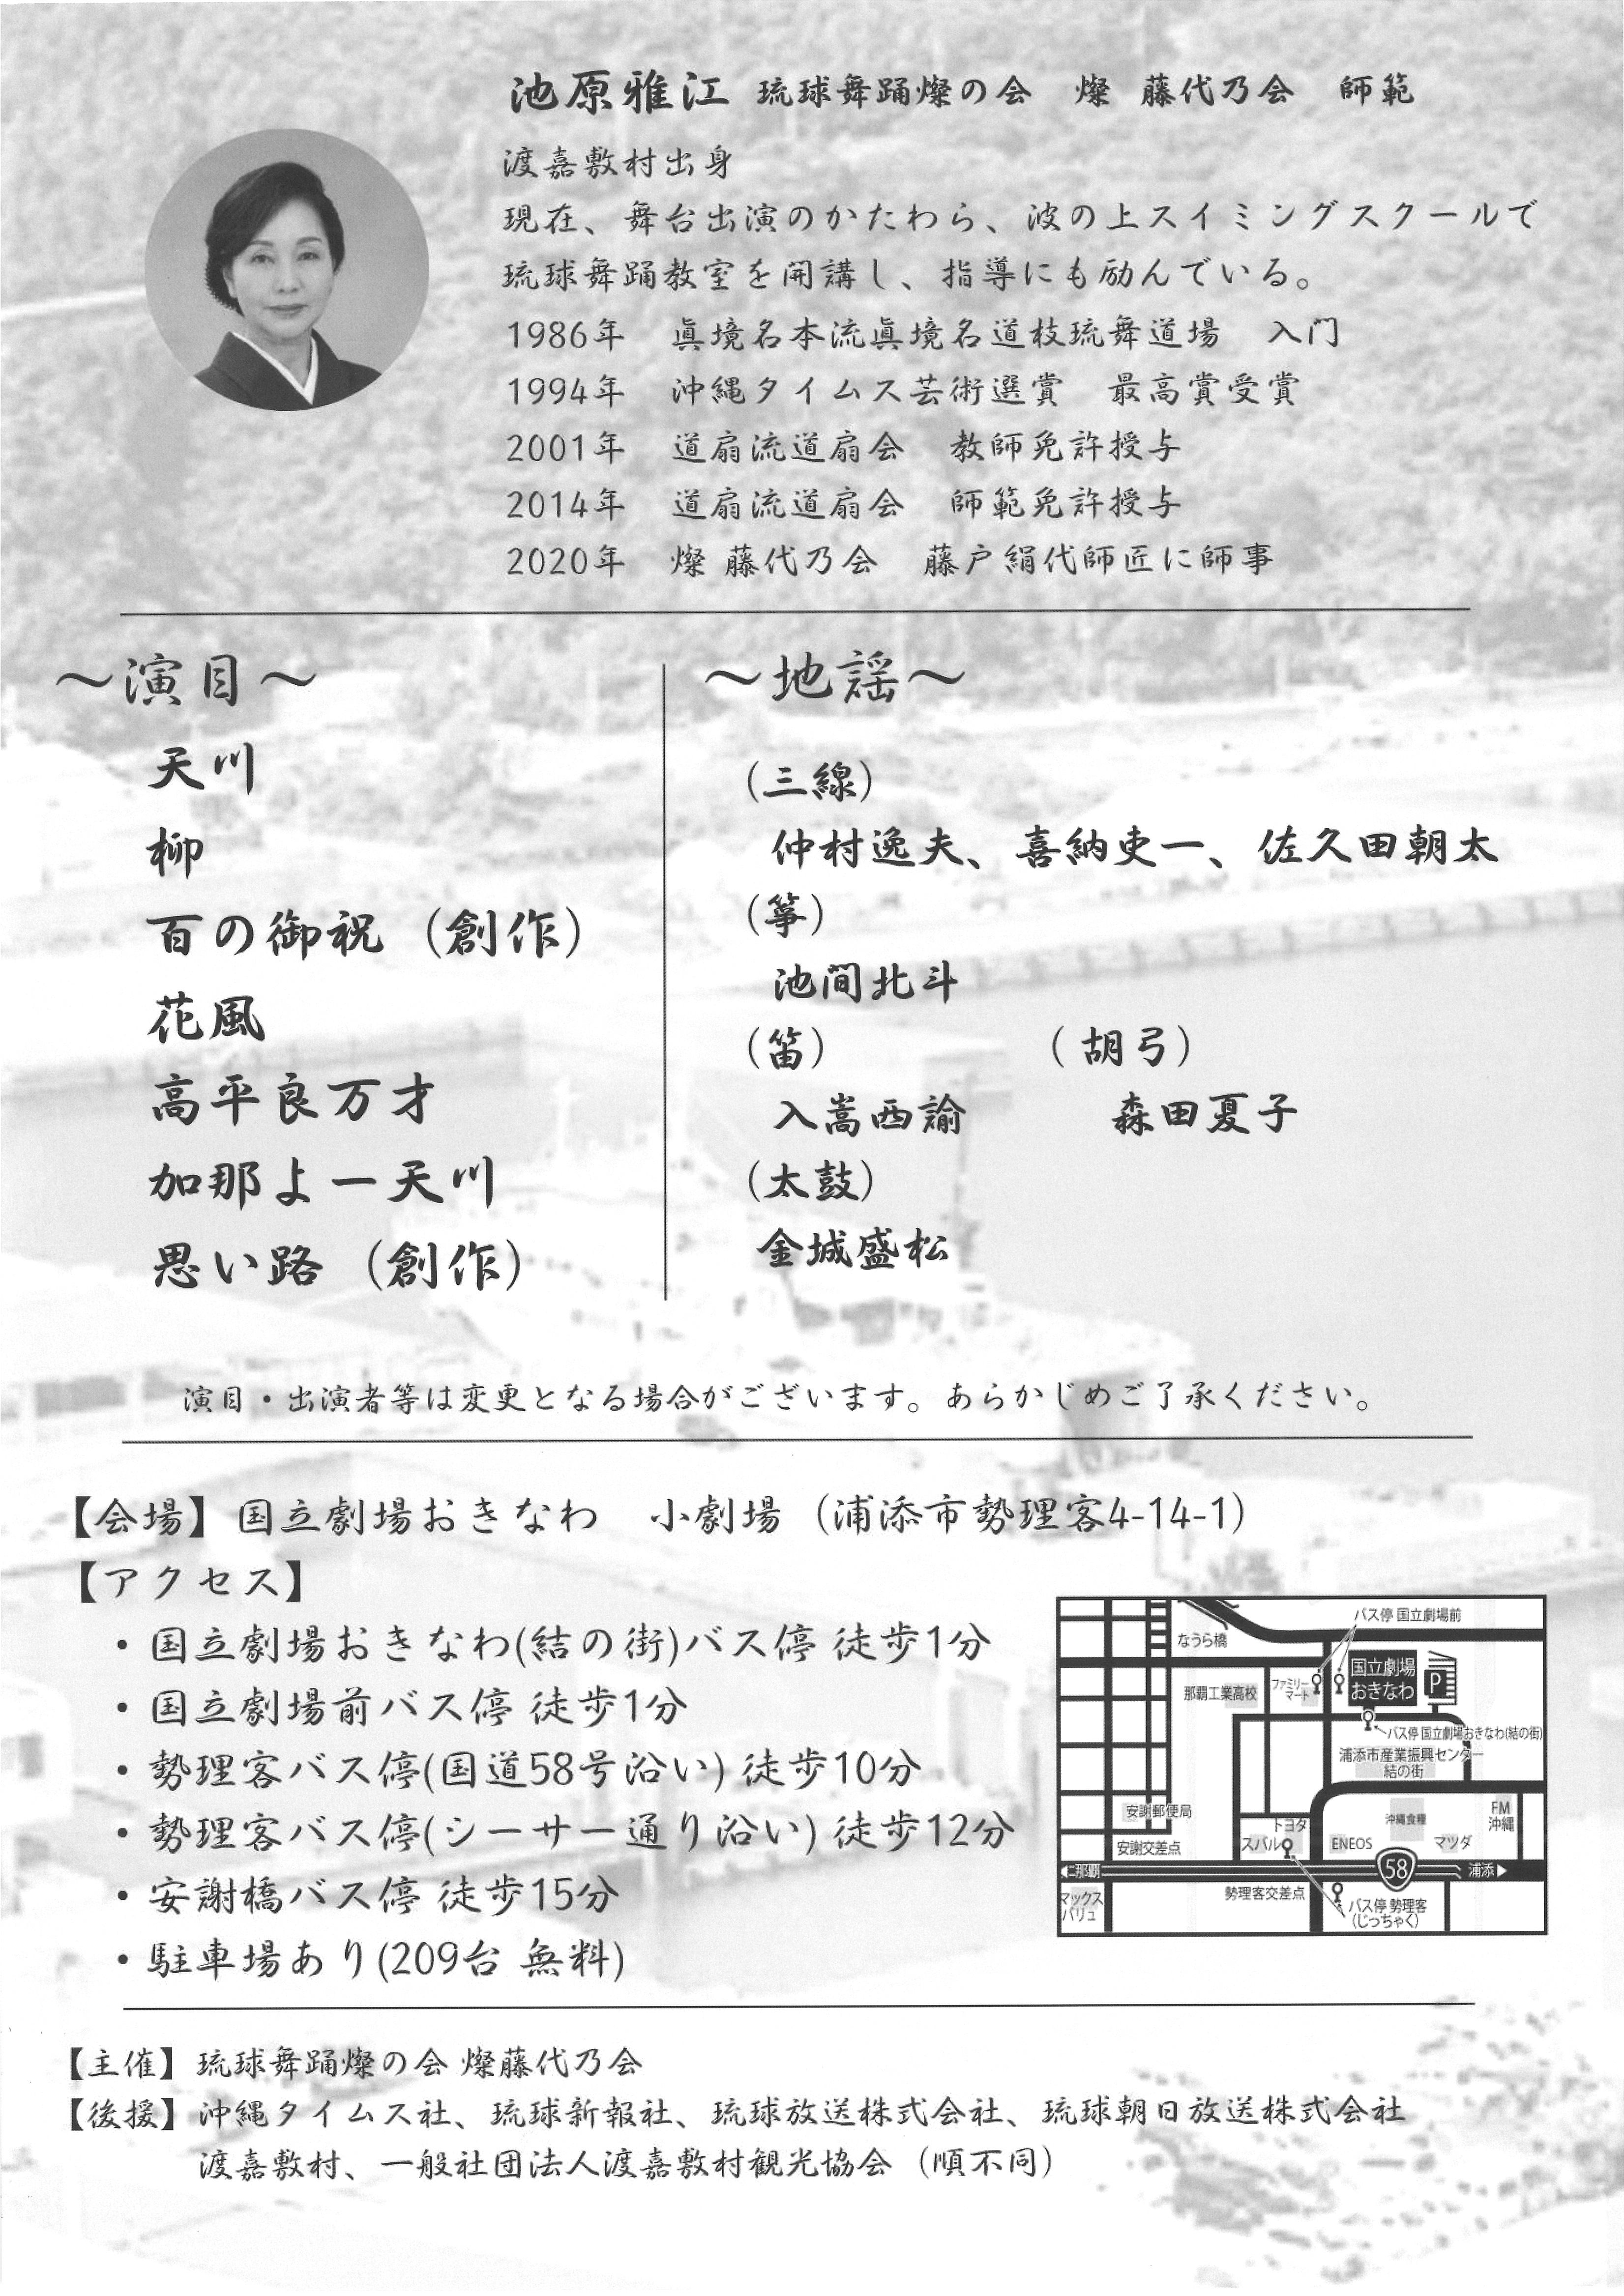 池原雅江 琉球舞踊燦の会 燦 藤代乃会 師範
渡嘉敷村出身
現在、舞台出演のかたわら、波の上スイミングスクールで
琉球舞踊教室を開講し、指導にも励んでいる。
1986年 眞境名本流眞境名道枝琉舞道場 入門
1994年 沖縄タイムス芸術選賞 最高賞受賞
2001年 道扇流道扇会 教師免許授与
2014年 道扇流道扇会 師範免許授与
2020年 燦 藤代乃会 藤戸絹代師匠に師事
～演目～
天川
柳
百の御祝（創作）
花風
高平良万才
加那よー天川
思い路（創作）
～地謡～
（三線）
仲村逸夫、喜納吏一、佐久田朝太
（箏）
池間北斗
（笛） （胡弓）
入嵩西諭 森田夏子
（太鼓）
金城盛松
演目・出演者等は変更となる場合がございます。あらかじめご了承ください。
【会場】国立劇場おきなわ 小劇場（浦添市勢理客4-14-1）
【アクセス】
・国立劇場おきなわ(結の街)バス停 徒歩1分
・国立劇場前バス停 徒歩1分
・勢理客バス停(国道58号沿い) 徒歩10分
・勢理客バス停(シーサー通り沿い) 徒歩12分
・安謝橋バス停 徒歩15分
・駐車場あり(209台 無料)
バス停 国立劇場前
なうら橋
国立劇場
おきなわ
P
那覇工業高校
ファミリー
マート
バス停 国立劇場おきなわ(結の街)
浦添市産業振興センター
結の街
安謝郵便局
安謝交差点
トヨタ
スバル
ENEOS
沖縄食糧
マツダ
FM
沖縄
那覇
58
浦添
マックス
バリュ
勢理客交差点
バス停 勢理客
(じっちゃく)
【主催】琉球舞踊燦の会 燦藤代乃会
【後援】沖縄タイムス社、琉球新報社、琉球放送株式会社、琉球朝日放送株式会社
渡嘉敷村、一般社団法人渡嘉敷村観光協会（順不同）